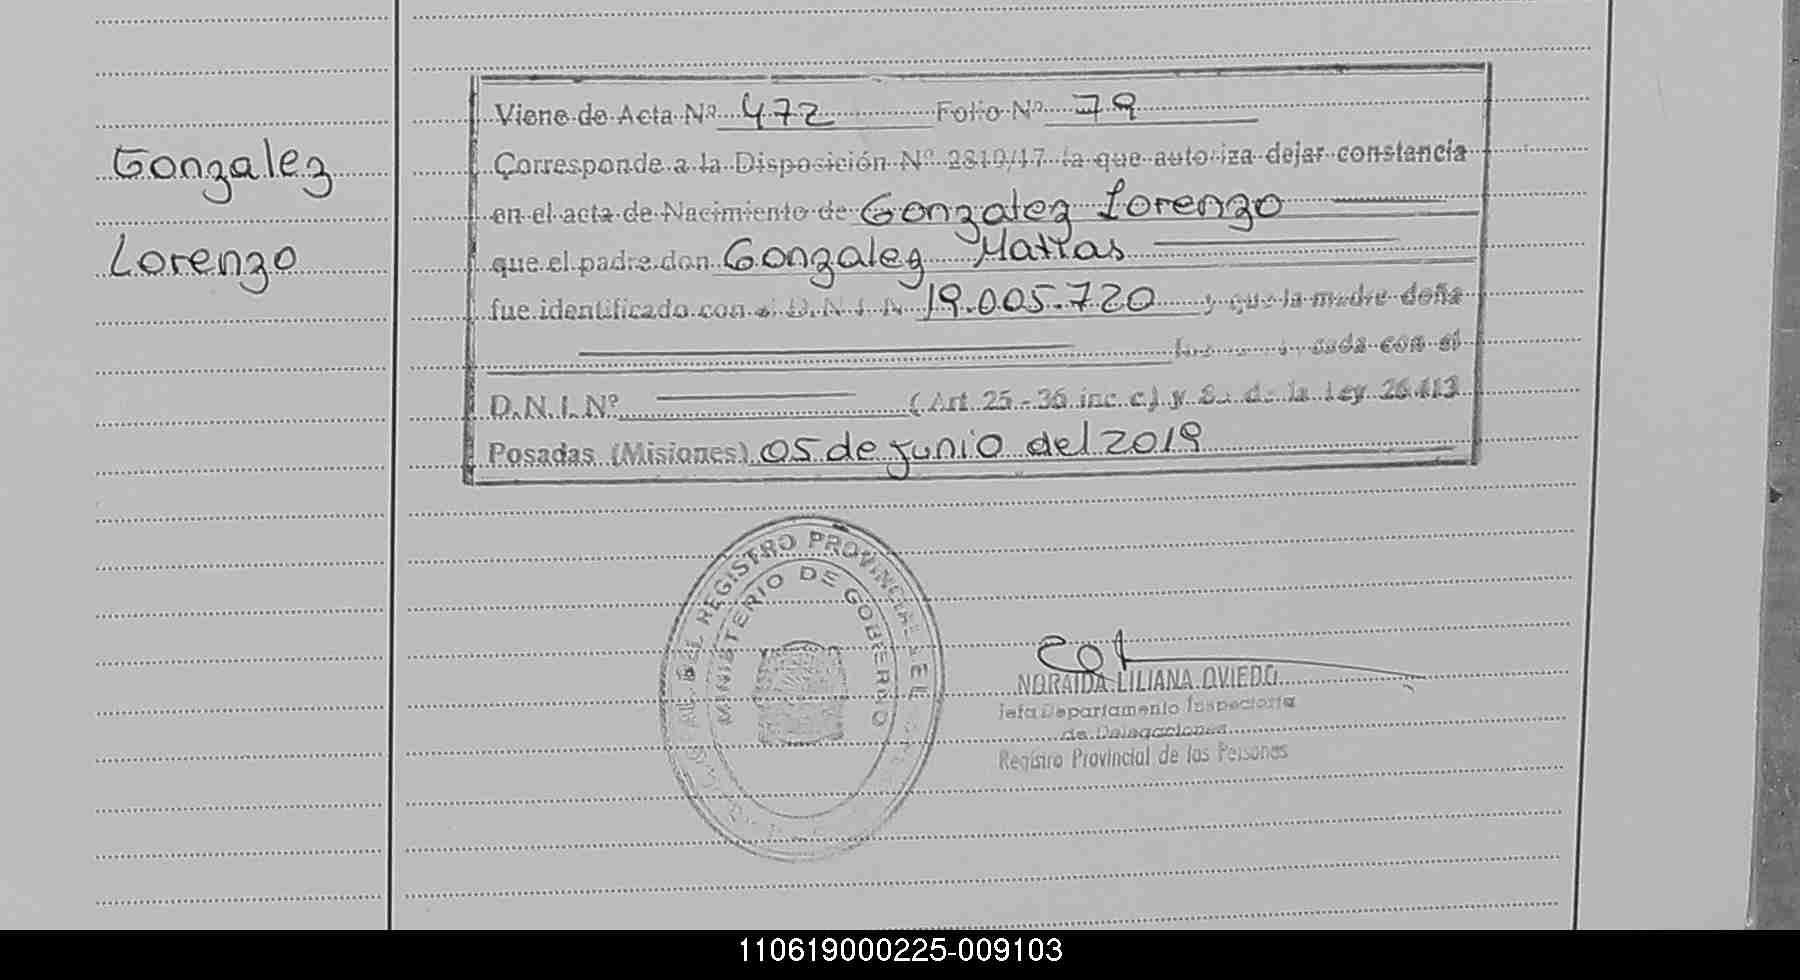 Gonzalez
Lorenzo
Viene de Acta Nº 472 Folio Nº 79
Corresponde a la Disposición Nº 2810/17 la que autoriza dejar constancia
en el acta de Nacimiento de Gonzalez Lorenzo
que el padre don Gonzalez Matias
fue identificado con el D.N.I. N 19.005.720 y que la madre doña
con el
D.N.I. Nº ( Art. 25 - 36 inc. c) y de la Ley 26.413
Posadas (Misiones) 05 de junio del 2019
DEL REGISTRO PROVINCIAL DE
MINISTERIO DE GOBIERNO
NORAIDA LILIANA OVIEDO
Jefa Departamento Inspectoria
de Delegaciones
Registro Provincial de las Personas
110619000225-009103